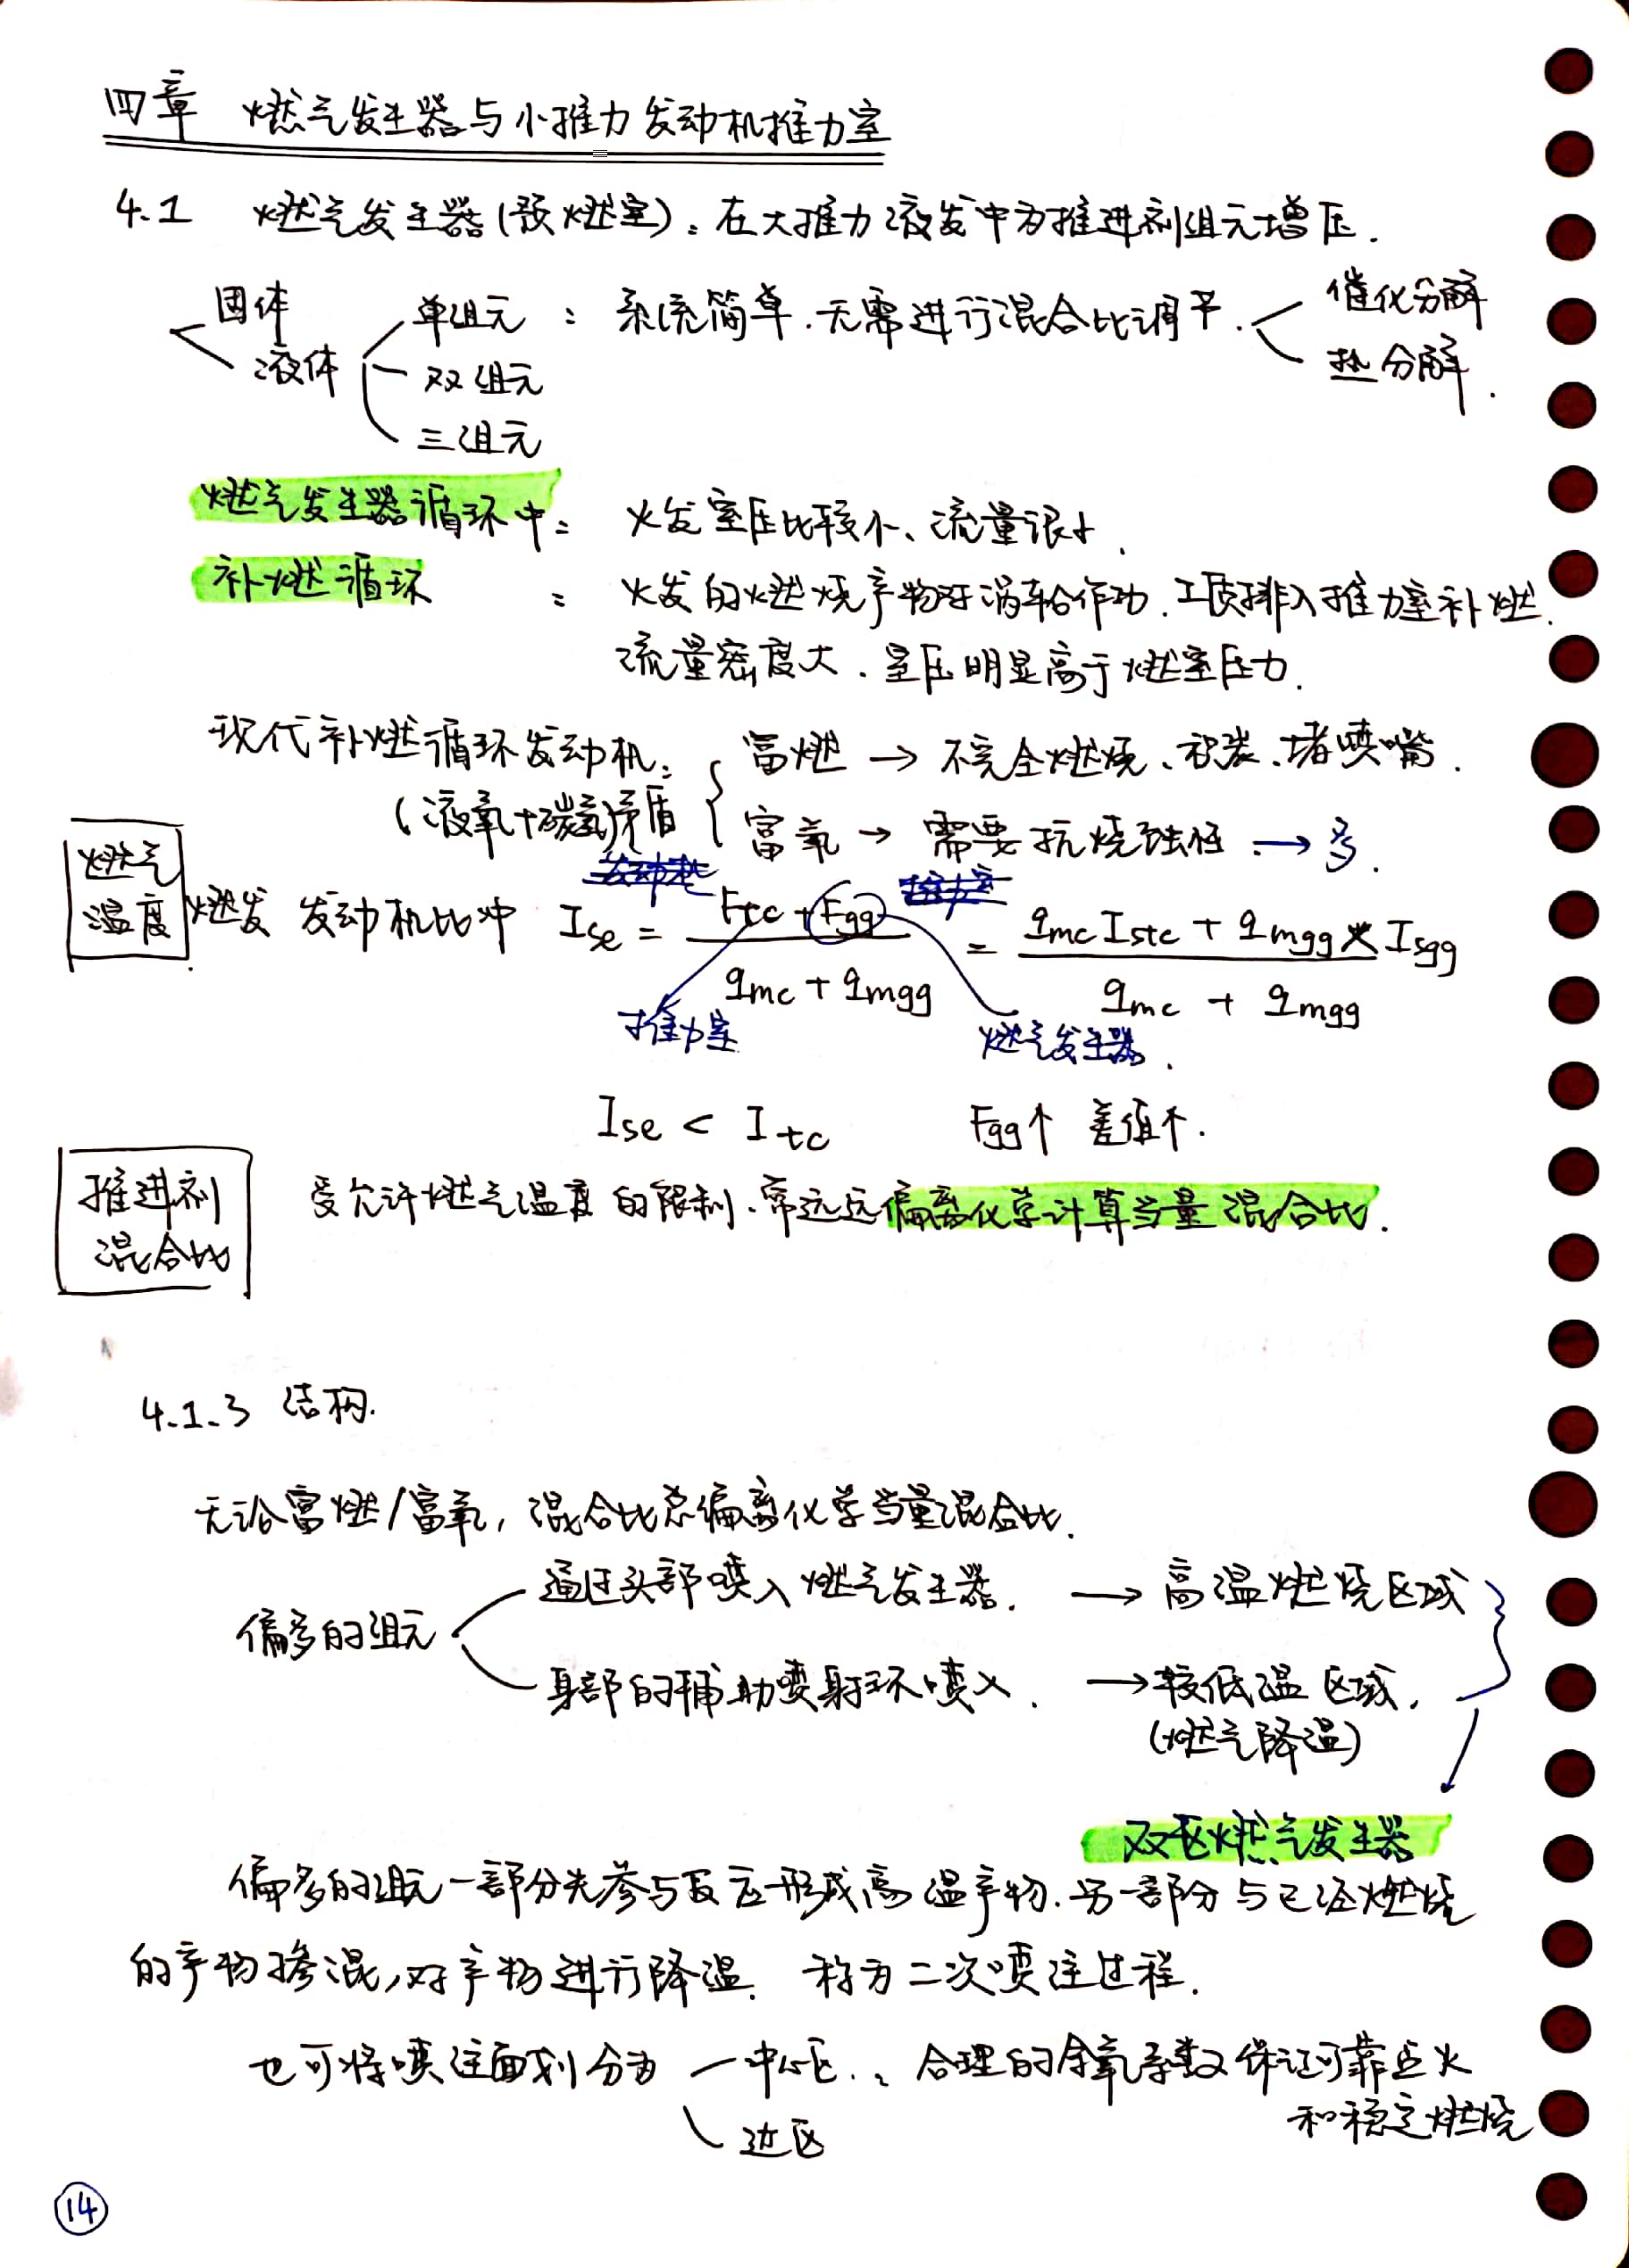 四章 燃气发生器与小推力发动机推力室
4.1 燃气发生器(预燃室):在大推力液发中为推进剂组元增压.
固体
液体
单组元 : 系统简单.无需进行混合比调节.
双组元
三组元
催化分解
热分解.
燃气发生器循环中: 火发室压比较小、流量很小.
补燃循环 : 火发的燃烧产物对涡轮作功.工质排入推力室补燃.
流量密度大.室压明显高于燃室压力.
现代补燃循环发动机: 富燃 → 不完全燃烧、积炭、堵喷嘴.
(液氧+碳氢)矛盾 富氧 → 需要抗烧蚀性.→多.
燃气
温度
燃发 发动机比冲 Ise = (Ftc + Fgg) / (qmc + qmgg) = (qmc Istc + qmgg * Isgg) / (qmc + qmgg)
推力室 燃气发生器.
Ise < Itc Fgg↑ 差值↑.
推进剂
混合比
受允许燃气温度的限制.常远远偏离化学计算当量混合比.
4.1.3 结构.
无论富燃/富氧,混合比总偏离化学当量混合比.
偏多的组元
通过头部喷入燃气发生器. → 高温燃烧区域
身部的辅助喷射环喷入. → 较低温区域,
(燃气降温)
双区燃气发生器
偏多的组元一部分先参与反应形成高温产物.另一部分与已经燃烧
的产物掺混,对产物进行降温. 称为二次喷注过程.
也可将喷注面划分为 中心区.: 合理的余氧系数保证可靠点火
和稳定燃烧
边区
14